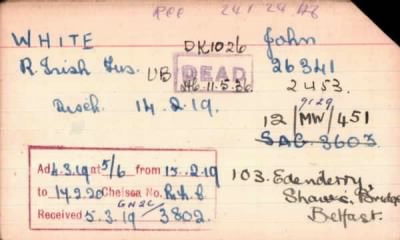 WHITE John
R. Irish Fus. UB DK1026 26341
DEAD
11.5.36 2453.
Disch. 14.2.19. 9129
12/MW/451
SAG 3603
Ad 4.3.19 at 5/6 from 15.2.19
to 17.2.20 Chelsea No.
Received 5.3.19 3802.
103. Edenderry
Shaw's Bridge
Belfast.